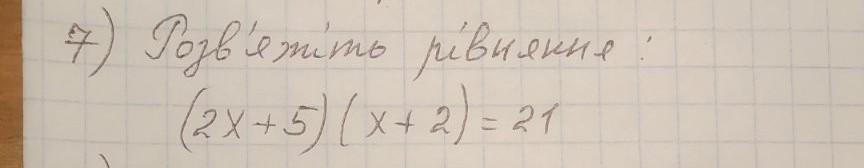 7) Розв'яжіть рівняння:
(2x+5)(x+2)=21